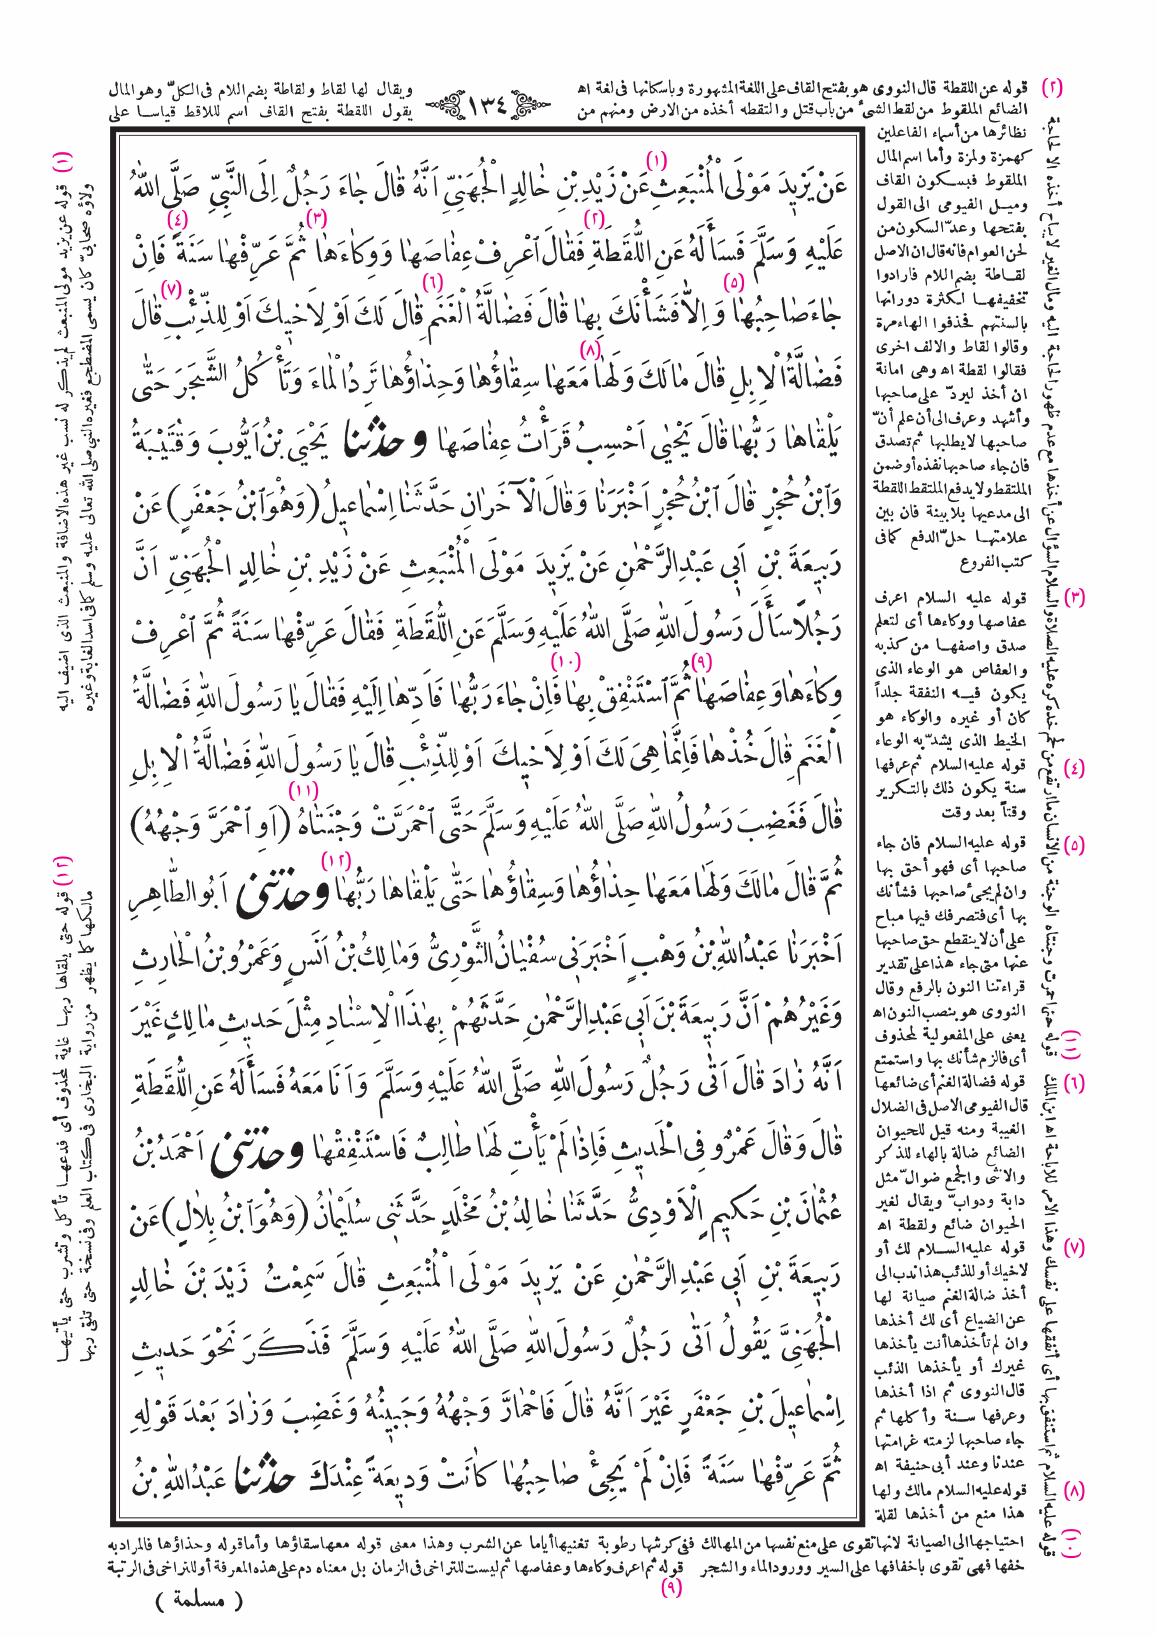 ١٣٤
(٢) قوله عن اللقطة قال النووى هو بفتح القاف على اللغة المشهورة وباسكانها فى لغة اه
الضائع الملقوط من لقط الشئ من باب قتل والتقطه أخذه من الارض ومنهم من
ويقال لها لقاط ولقاطة بضم اللام فى الكلّ وهو المال
يقول اللقطة بفتح القاف اسم للاقط قياسا على
نظائرها من أسماء الفاعلين
كهمزة ولمزة وأما اسم المال
الملقوط فبسكون القاف
وميل الفيومى الى القول
بفتحها وعدّ السكون من
لحن العوام فانه قال ان الاصل
لقاطة بضم اللام فارادوا
تخفيفها لكثرة دورانها
بالسنتهم فحذفوا الهاء مرة
وقالوا لقاط والالف اخرى
فقالوا لقطة اه وهى امانة
ان أخذ ليردّ على صاحبها
وأشهد وعرف الى أن علم أنّ
صاحبها لا يطلبها ثم تصدق
فان جاء صاحبها نفذه أو ضمن
الملتقط ولا يدفع الملتقط اللقطة
الى مدعيها بلا بينة فان بين
علامتها حلّ الدفع كما فى
كتب الفروع
(٣) قوله عليه السلام اعرف
عفاصها ووكاءها أى لتعلم
صدق واصفها من كذبه
والعفاص هو الوعاء الذى
يكون فيه النفقة جلداً
كان أو غيره والوكاء هو
الخيط الذى يشدّ به الوعاء
(٤) قوله عليه السلام ثم عرفها
سنة يكون ذلك بالتكرير
وقتاً بعد وقت
(٥) قوله عليه السلام فان جاء
صاحبها أى فهو أحق بها
وان لم يجئ صاحبها فشأنك
بها أى فتصرفك فيها مباح
على أن لا ينقطع حق صاحبها
عنها متى جاء هذا على تقدير
قراءتنا النون بالرفع وقال
النووى هو بنصب النون اه
يعنى على المفعولية لمحذوف
أى فالزم شأنك بها واستمتع
(٦) قوله فضالة الغنم أى ضائعها
قال الفيومى الاصل فى الضلال
الغيبة ومنه قيل للحيوان
الضائع ضالة بالهاء للذكر
والانثى والجمع ضوالّ مثل
دابة ودوابّ ويقال لغير
الحيوان ضائع ولقطة اه
(٧) قوله عليه السلام لك أو
لاخيك أو للذئب هذا ندب الى
أخذ ضالة الغنم صيانة لها
عن الضياع أى لك أخذها
وان لم تأخذها أنت يأخذها
غيرك أو يأخذها الذئب
قال النووى ثم اذا أخذها
وعرفها سنة وأكلها ثم
جاء صاحبها لزمته غرامتها
عندنا وعند أبى حنيفة اه
(٨) قوله عليه السلام مالك ولها
هذا منع من أخذها لقلة
عَنْ يَزِيدَ مَوْلَى الْمُنْبَعِثِ (١) عَنْ زَيْدِ بْنِ خَالِدٍ الْجُهَنِيِّ اَنَّهُ قَالَ جَاءَ رَجُلٌ اِلَى النَّبِيِّ صَلَّى اللهُ
عَلَيْهِ وَسَلَّمَ فَسَأَلَهُ عَنِ اللُّقَطَةِ (٢) فَقَالَ اعْرِفْ عِفَاصَهَا وَوِكَاءَهَا (٣) ثُمَّ عَرِّفْهَا سَنَةً (٤) فَاِنْ
جَاءَ صَاحِبُهَا وَ اِلاَّ فَشَأْنَكَ بِهَا (٥) قَالَ فَضَالَّةُ الْغَنَمِ (٦) قَالَ لَكَ اَوْ لِاَخيكَ اَوْ لِلذِّئْبِ (٧) قَالَ
فَضَالَّةُ الْاِبِلِ قَالَ مَا لَكَ وَلَهَا (٨) مَعَهَا سِقَاؤُهَا وَحِذَاؤُهَا تَرِدُ الْمَاءَ وَتَأْكُلُ الشَّجَرَ حَتّٰى
يَلْقَاهَا رَبُّهَا قَالَ يَحْيٰى اَحْسِبُ قَرَأْتُ عِفَاصَهَا وحدثنا يَحْيَى بْنُ اَيُّوبَ وَقُتَيْبَةُ
وَابْنُ حُجْرٍ قَالَ ابْنُ حُجْرٍ اَخْبَرَنَا وَقَالَ الْآخَرَانِ حَدَّثَنَا اِسْمَاعِيلُ (وَهُوَ ابْنُ جَعْفَرٍ) عَنْ
رَبِيعَةَ بْنِ اَبِي عَبْدِ الرَّحْمٰنِ عَنْ يَزِيدَ مَوْلَى الْمُنْبَعِثِ عَنْ زَيْدِ بْنِ خَالِدٍ الْجُهَنِيِّ اَنَّ
رَجُلاً سَأَلَ رَسُولَ اللهِ صَلَّى اللهُ عَلَيْهِ وَسَلَّمَ عَنِ اللُّقَطَةِ فَقَالَ عَرِّفْهَا سَنَةً ثُمَّ اعْرِفْ
وِكَاءَهَا وَعِفَاصَهَا (٩) ثُمَّ اسْتَنْفِقْ بِهَا (١٠) فَاِنْ جَاءَ رَبُّهَا فَاَدِّهَا اِلَيْهِ فَقَالَ يَا رَسُولَ اللهِ فَضَالَّةُ
الْغَنَمِ قَالَ خُذْهَا فَاِنَّمَا هِيَ لَكَ اَوْ لِاَخيكَ اَوْ لِلذِّئْبِ قَالَ يَا رَسُولَ اللهِ فَضَالَّةُ الْاِبِلِ
قَالَ فَغَضِبَ رَسُولُ اللهِ صَلَّى اللهُ عَلَيْهِ وَسَلَّمَ حَتَّى احْمَرَّتْ وَجْنَتَاهُ (١١) (اَوِ احْمَرَّ وَجْهُهُ)
ثُمَّ قَالَ مَالَكَ وَلَهَا مَعَهَا حِذَاؤُهَا وَسِقَاؤُهَا حَتّٰى يَلْقَاهَا رَبُّهَا (١٢) وحدثنى اَبُو الطَّاهِرِ
اَخْبَرَنَا عَبْدُ اللهِ بْنُ وَهْبٍ اَخْبَرَنِي سُفْيَانُ الثَّوْرِيُّ وَمَالِكُ بْنُ اَنَسٍ وَعَمْرُو بْنُ الْحَارِثِ
وَغَيْرُهُمْ اَنَّ رَبِيعَةَ بْنَ اَبِي عَبْدِ الرَّحْمٰنِ حَدَّثَهُمْ بِهٰذَا الْاِسْنَادِ مِثْلَ حَدِيثِ مَالِكٍ غَيْرَ
اَنَّهُ زَادَ قَالَ اَتٰى رَجُلٌ رَسُولَ اللهِ صَلَّى اللهُ عَلَيْهِ وَسَلَّمَ وَاَنَا مَعَهُ فَسَأَلَهُ عَنِ اللُّقَطَةِ
قَالَ وَقَالَ عَمْرٌو فِي الْحَدِيثِ فَاِذَا لَمْ يَأْتِ لَهَا طَالِبٌ فَاسْتَنْفِقْهَا وحدثنى اَحْمَدُ بْنُ
عُثْمَانَ بْنِ حَكِيمٍ الْاَوْدِيُّ حَدَّثَنَا خَالِدُ بْنُ مَخْلَدٍ حَدَّثَنِي سُلَيْمَانُ (وَهُوَ ابْنُ بِلَالٍ) عَنْ
رَبِيعَةَ بْنِ اَبِي عَبْدِ الرَّحْمٰنِ عَنْ يَزِيدَ مَوْلَى الْمُنْبَعِثِ قَالَ سَمِعْتُ زَيْدَ بْنَ خَالِدٍ
الْجُهَنِيَّ يَقُولُ اَتٰى رَجُلٌ رَسُولَ اللهِ صَلَّى اللهُ عَلَيْهِ وَسَلَّمَ فَذَكَرَ نَحْوَ حَدِيثِ
اِسْمَاعِيلَ بْنِ جَعْفَرٍ غَيْرَ اَنَّهُ قَالَ فَاحْمَارَّ وَجْهُهُ وَجَبِينُهُ وَغَضِبَ وَزَادَ بَعْدَ قَوْلِهِ
ثُمَّ عَرِّفْهَا سَنَةً فَاِنْ لَمْ يَجِئْ صَاحِبُهَا كَانَتْ وَدِيعَةً عِنْدَكَ حدثنا عَبْدُ اللهِ بْنُ
احتياجها الى الصيانة لانها تقوى على منع نفسها من المهالك ففى كرشها رطوبة تغنيها أياما عن الشرب وهذا معنى قوله معها سقاؤها وأما قوله وحذاؤها فالمراد به
خفها فهى تقوى باخفافها على السير وورود الماء والشجر (٩) قوله ثم اعرف وكاءها وعفاصها ثم ليست للتراخى فى الزمان بل معناه دم على هذه المعرفة أو للتراخى فى الرتبة
(١) قوله عن يزيد مولى المنبعث لم يذكر له نسب غير هذه الاضافة والمنبعث الذى اضيف اليه
ولاؤه صحابىّ كان يسمى المضطجع فغيره النبى صلى الله تعالى عليه وسلم كما فى اسد الغابة وغيره
(١٢) قوله حتى يلقاها ربها غاية لمحذوف أى فدعها تأكل وتشرب حتى يأتيها
مالكها كما يظهر من رواية البخارى فى كتاب العلم وفى نسخة حتى تلقى ربها
(١٠) قوله عليه السلام ثم استنفق بها أى أنفقها على نفسك وهذا الامر للاباحة اه ابن الملك
(١١) قوله حتى احمرت وجنتاه الوجنة من الانسان ما ارتفع من لحم خده كره عليه الصلاة والسلام السؤال عن أخذها مع عدم ظهور الحاجة اليه ومال الغير لا يباح أخذه الا لحاجة
( مسلمة )